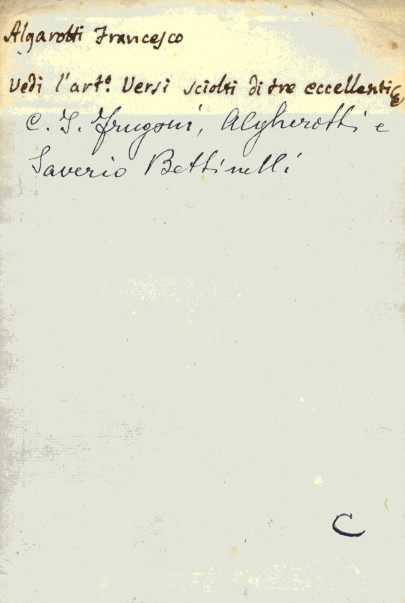 Algarotti Francesco
Vedi l'art.º Versi sciolti di tre eccellenti
C. I. Frugoni, Algherotti e
Saverio Bettinelli
C